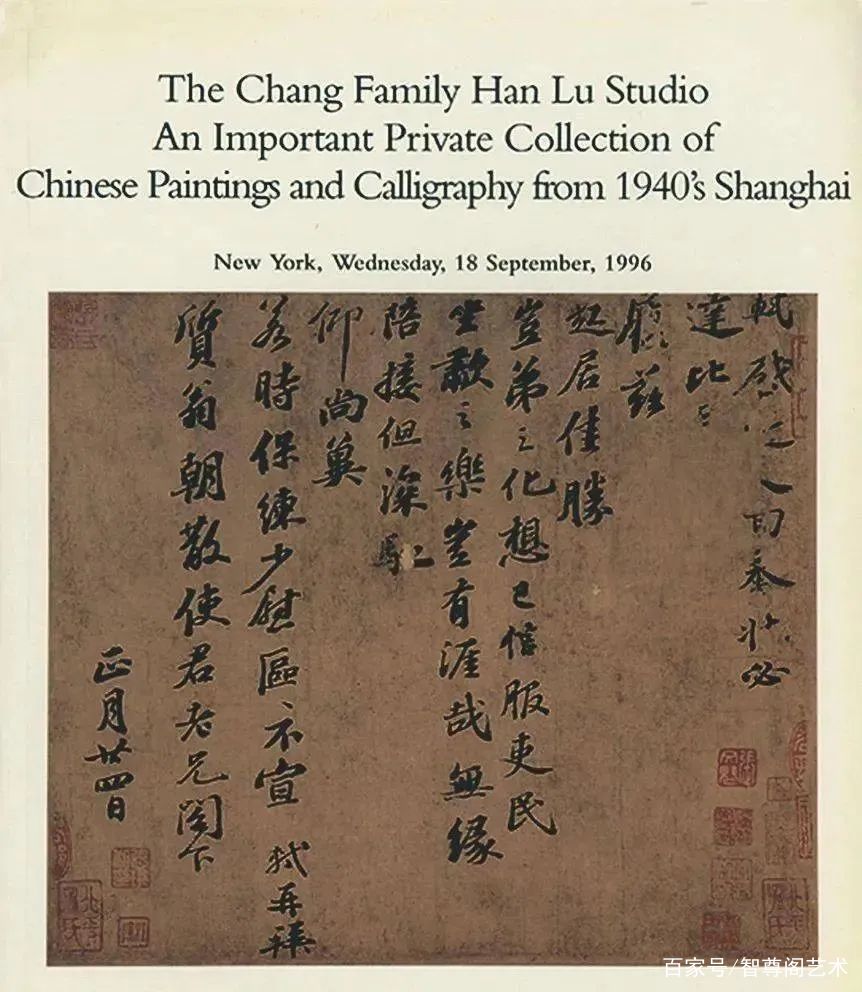 The Chang Family Han Lu Studio
An Important Private Collection of
Chinese Paintings and Calligraphy from 1940's Shanghai
New York, Wednesday, 18 September, 1996
軾啓近人回奉狀必
達比日
履茲
起居佳勝
豈弟之化想已信服吏民
坐歗之樂豈有涯哉無緣
陪接但深馳
仰尚冀
若時保練少慰區不宣 軾再拜
質翁朝散使君老兄閣下
正月廿四日
百家号/智尊阁艺术